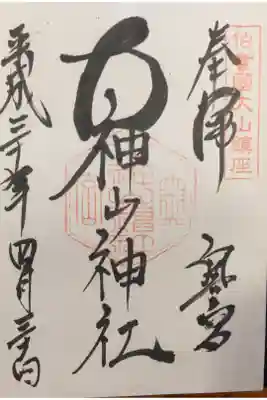 伯耆國大山鎮座
奉拝
奥宮
大神山神社
平成三十年四月三十日